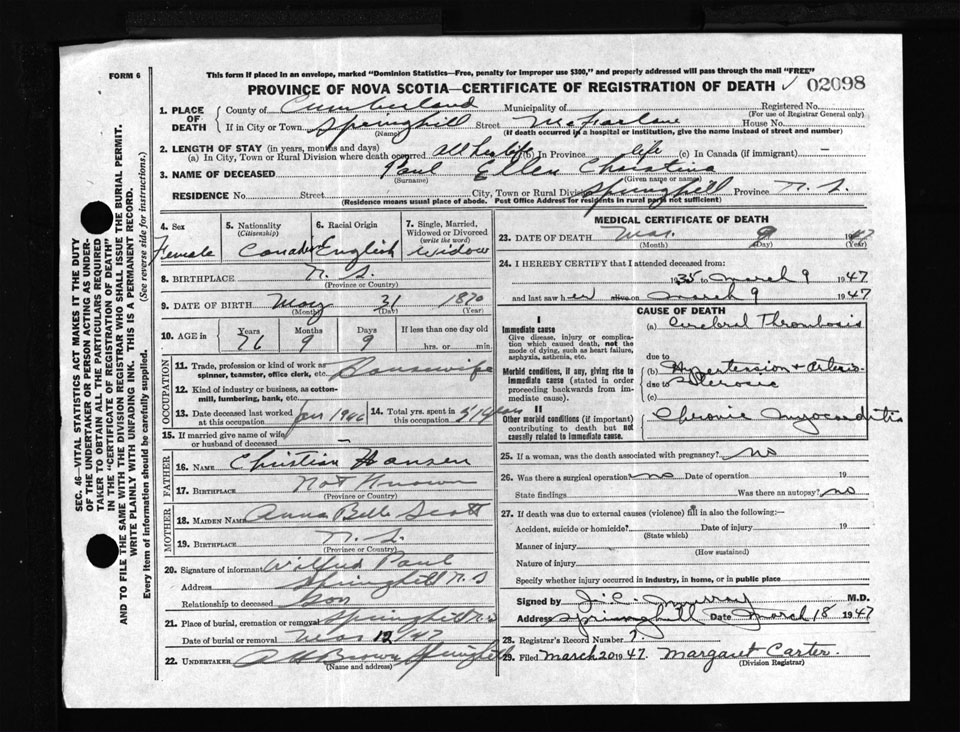 FORM 6
This form if placed in an envelope, marked "Dominion Statistics—Free, penalty for improper use $300," and properly addressed will pass through the mail "FREE"
PROVINCE OF NOVA SCOTIA—CERTIFICATE OF REGISTRATION OF DEATH 02098
1. PLACE OF DEATH
County of Cumberland Municipality of Registered No.
(For use of Registrar General only)
If in City or Town Springhill Street McFarlane House No.
(Name) (If death occurred in a hospital or institution, give the name instead of street and number)
2. LENGTH OF STAY (in years, months and days)
(a) In City, Town or Rural Division where death occurred all her life (b) In Province life (c) In Canada (if immigrant) —
3. NAME OF DECEASED Paul Ellen Christina
(Surname) (Given name or names)
RESIDENCE No. Street City, Town or Rural Division Springhill Province N. S.
(Residence means usual place of abode. Post Office Address for residents in rural parts not sufficient)
4. Sex
Female
5. Nationality
(Citizenship)
Canadian
6. Racial Origin
English
7. Single, Married, Widowed or Divorced
(write the word)
Widow
8. BIRTHPLACE N. S.
(Province or Country)
9. DATE OF BIRTH May 31 1870
(Month) (Day) (Year)
10. AGE in Years Months Days If less than one day old
76 9 9 hrs. or min.
OCCUPATION
11. Trade, profession or kind of work as spinner, teamster, office clerk, etc. Housewife
12. Kind of industry or business, as cotton-mill, lumbering, bank, etc.
13. Date deceased last worked at this occupation Jan 1946 14. Total yrs. spent in this occupation 51 years
15. If married give name of wife or husband of deceased —
FATHER
16. NAME Christian Hansen
17. BIRTHPLACE Not Known
(Province or Country)
MOTHER
18. MAIDEN NAME Anna Belle Scott
19. BIRTHPLACE N. S.
(Province or Country)
20. Signature of informant Wilfred Paul
Address Springhill N. S
Relationship to deceased Son
21. Place of burial, cremation or removal Springhill N.S
Date of burial or removal Mar 12 /47
22. UNDERTAKER A H Brown Springhill
(Name and address)
MEDICAL CERTIFICATE OF DEATH
23. DATE OF DEATH Mar. 9 1947
(Month) (Day) (Year)
24. I HEREBY CERTIFY that I attended deceased from:
1935 to March 9 1947
and last saw her alive on March 9 1947
CAUSE OF DEATH
I
Immediate cause
Give disease, injury or complication which caused death, not the mode of dying, such as heart failure, asphyxia, asthenia, etc.
(a) Cerebral Thrombosis
due to
Morbid conditions, if any, giving rise to immediate cause (stated in order proceeding backwards from immediate cause).
(b) Hypertension + Arterio-
due to sclerosis
(c)
II
Other morbid conditions (if important) contributing to death but not causally related to immediate cause.
Chronic Myocarditis
25. If a woman, was the death associated with pregnancy? no
26. Was there a surgical operation no Date of operation 19
State findings Was there an autopsy? no
27. If death was due to external causes (violence) fill in also the following:—
Accident, suicide or homicide? Date of injury 19
(State which)
Manner of injury
(How sustained)
Nature of injury
Specify whether injury occurred in industry, in home, or in public place
Signed by J. C. Murray M.D.
Address Springhill Date March 18 1947
28. Registrar's Record Number 7.
29. Filed March 20 1947. Margaret Carter.
(Division Registrar)
SEC. 46—VITAL STATISTICS ACT MAKES IT THE DUTY
OF THE UNDERTAKER OR PERSON ACTING AS UNDER-
TAKER TO OBTAIN ALL THE PARTICULARS REQUIRED
IN THE "CERTIFICATE OF REGISTRATION OF DEATH"
AND TO FILE THE SAME WITH THE DIVISION REGISTRAR WHO SHALL ISSUE THE BURIAL PERMIT.
WRITE PLAINLY WITH UNFADING INK. THIS IS A PERMANENT RECORD.
Every item of information should be carefully supplied. (See reverse side for instructions.)